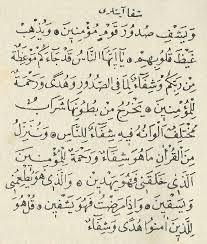 شفا آیتلری
وَيَشْفِ صُدُورَ قَوْمٍ مُؤْمِنِينَ ۞ وَيُذْهِبْ
غَيْظَ قُلُوبِهِمْ ۞ يَا اَيُّهَا النَّاسُ قَدْ جَاءَكُمْ مَوْعِظَةٌ
مِنْ رَبِّكُمْ وَشِفَاءٌ لِمَا فِي الصُّدُورِ وَهُدًى وَرَحْمَةٌ
لِلْمُؤْمِنِينَ ۞ يَخْرُجُ مِنْ بُطُونِهَا شَرَابٌ
مُخْتَلِفٌ اَلْوَانُهُ فِيهِ شِفَاءٌ لِلنَّاسِ ۞ وَنُنَزِّلُ
مِنَ الْقُرْاٰنِ مَا هُوَ شِفَاءٌ وَرَحْمَةٌ لِلْمُؤْمِنِينَ
اَلَّذِي خَلَقَنِي فَهُوَ يَهْدِينِ ۞ وَالَّذِي هُوَ يُطْعِمُنِي
وَيَسْقِينِ ۞ وَاِذَا مَرِضْتُ فَهُوَ يَشْفِينِ ۞ قُلْ هُوَ
لِلَّذِينَ اٰمَنُوا هُدًى وَشِفَاءٌ